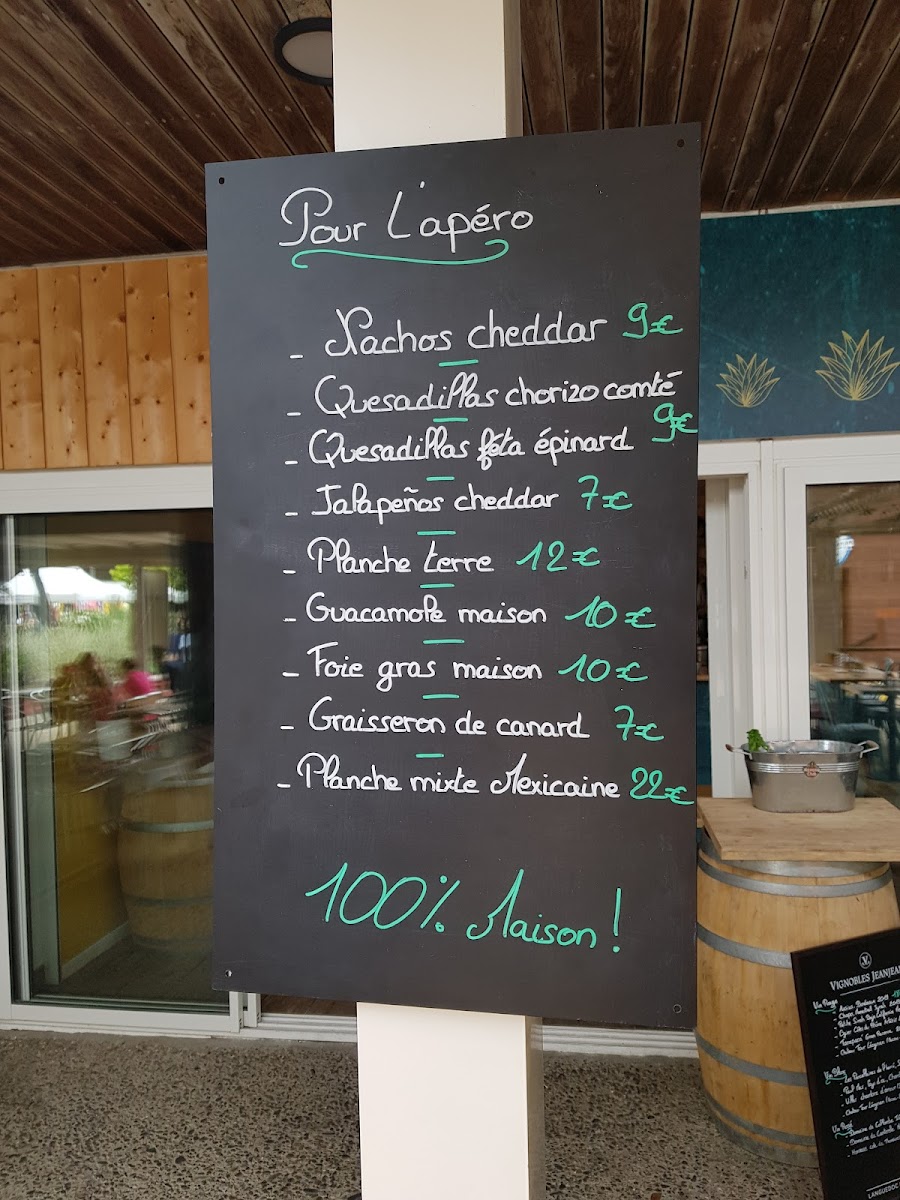 Pour L'apéro
- Nachos cheddar 9€
- Quesadillas chorizo comté
- Quesadillas féta épinard 9€
- Jalapeños cheddar 7€
- Planche terre 12€
- Guacamole maison 10€
- Foie gras maison 10€
- Graisseron de canard 7€
- Planche mixte Mexicaine 22€
100% Maison!
VIGNOBLES JEANJEAN
Vin Rouge
Vin Blanc
Vin Rosé
LANGUEDOC